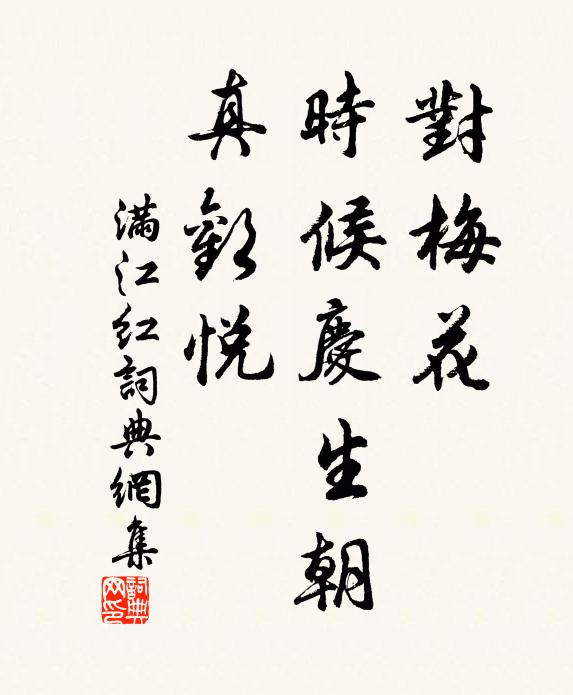 對梅花
時候慶生朝
真歡悅
滿江紅詞典網集
詞典網印